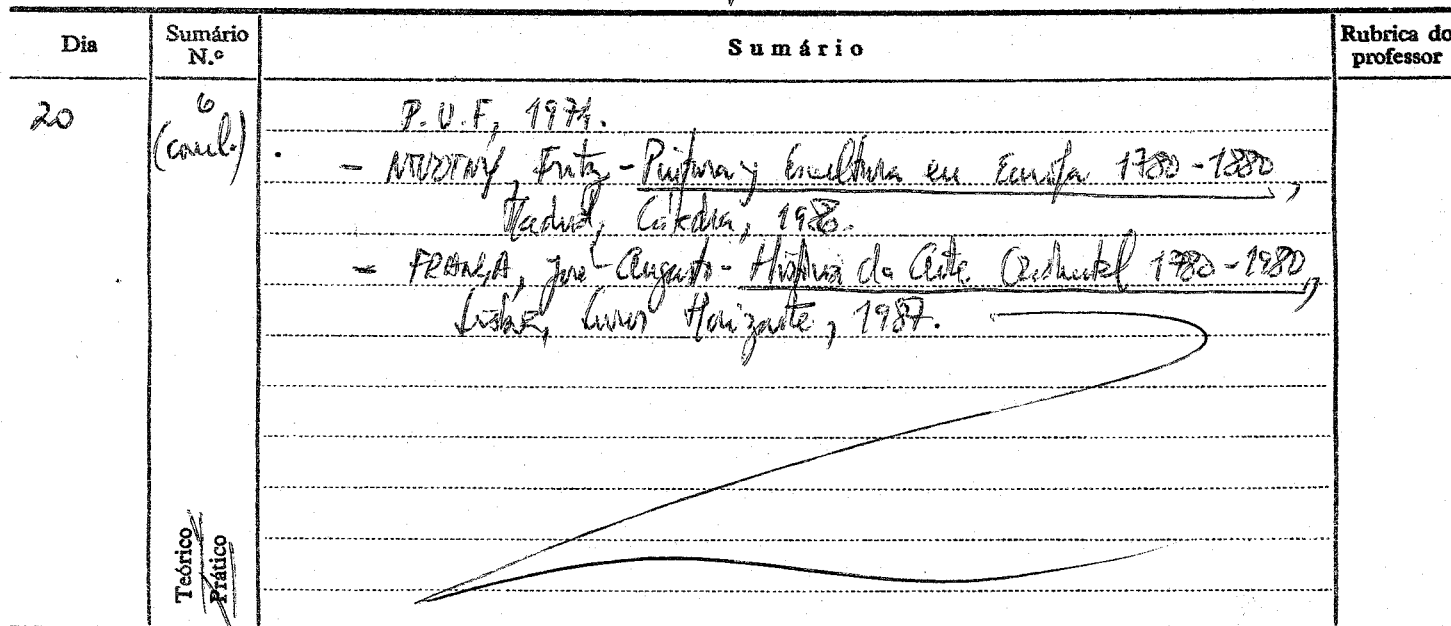 Dia Sumário N.º Sumário Rubrica do professor
20 6 (concl.)
P.U.F, 1971.
- NOVOTNY, Fritz - Pintura y Escultura en Europa 1780-1880,
Madrid, Cátedra,
- FRANÇA, José-Augusto - História da Arte Ocidental 1780-1980,
Lisboa, Livros Horizonte, 1987.
Teórico
Prático